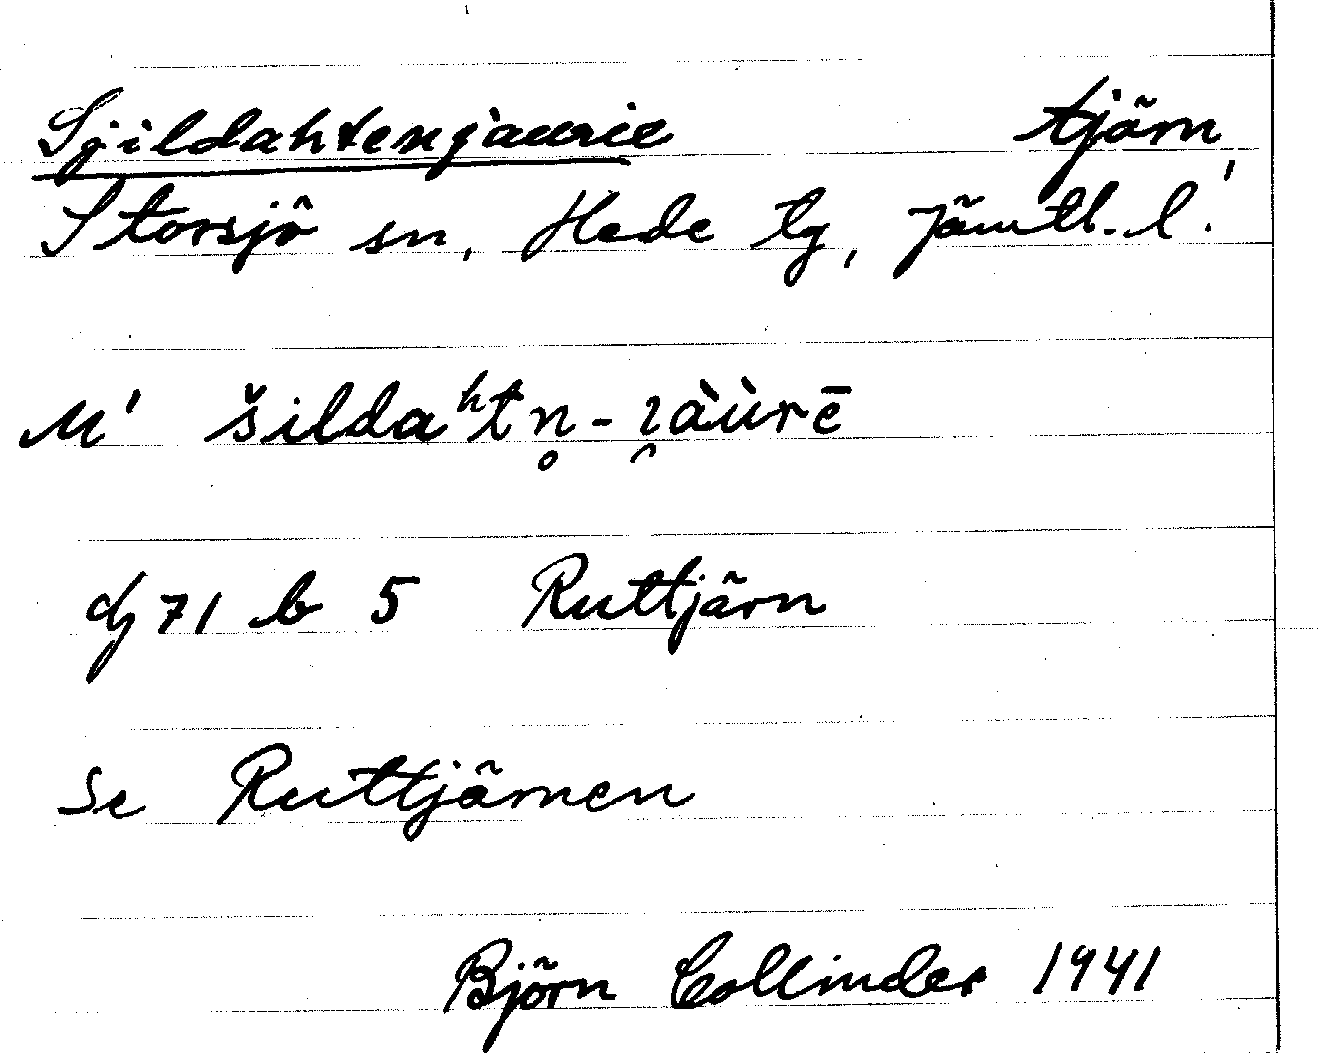 Sjildahtenjaurie tjärn,
Storsjö sn, Hede tg, Jämtl. l.
M' šildaʰtn̥-i̯àùrē
dj 71 b 5 Ruttjärn
Se Ruttjärnen
Björn Collinder 1941